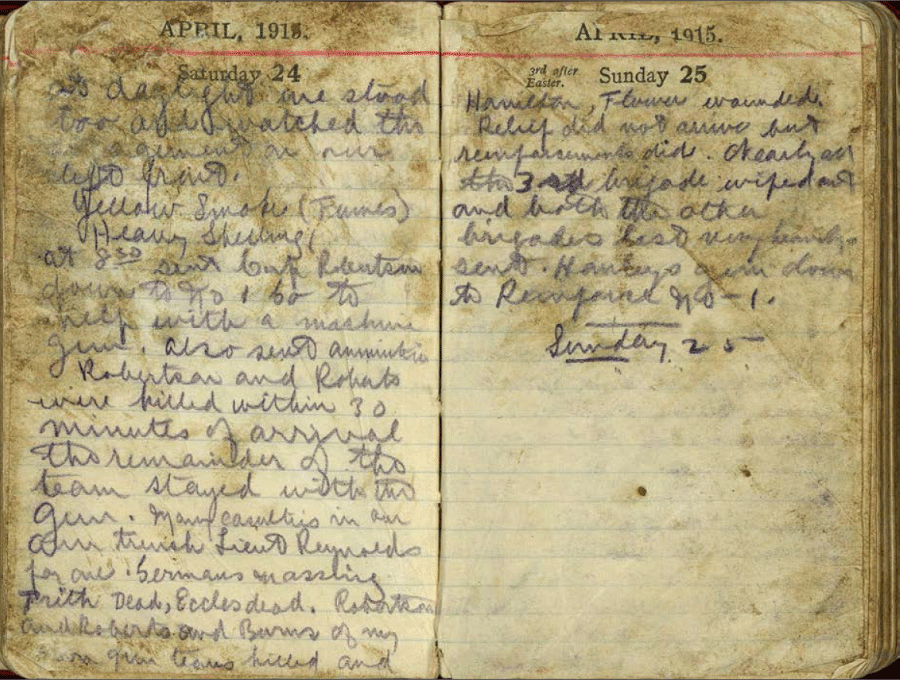 APRIL, 1915.
Saturday 24
at daylight we stood
too and watched the
on our
left front.
Yellow Smoke (Fumes)
Heavy Shelling
at 8 30 sent Corp Robertson
down to No 1 Co to
help with a machine
gun. Also sent
Robertson and Roberts
were killed within 30
minutes of arrival
the remainder of the
team stayed with the
Gun. Many casulties in our
own trench Lieut Reynolds
for one. Germans massing
Frith Dead, Eccles dead. Robertson
and Roberts and Burns of my
own gun teams killed and
APRIL, 1915.
3rd after
Easter.
Sunday 25
Hamilton, Flower wounded.
Relief did not arrive but
reinforsements did. Nearly all
the 3rd brigade wiped out
and both the other
brigades lost very
sent. gun down
to Reinforce No-1.
Sunday 25